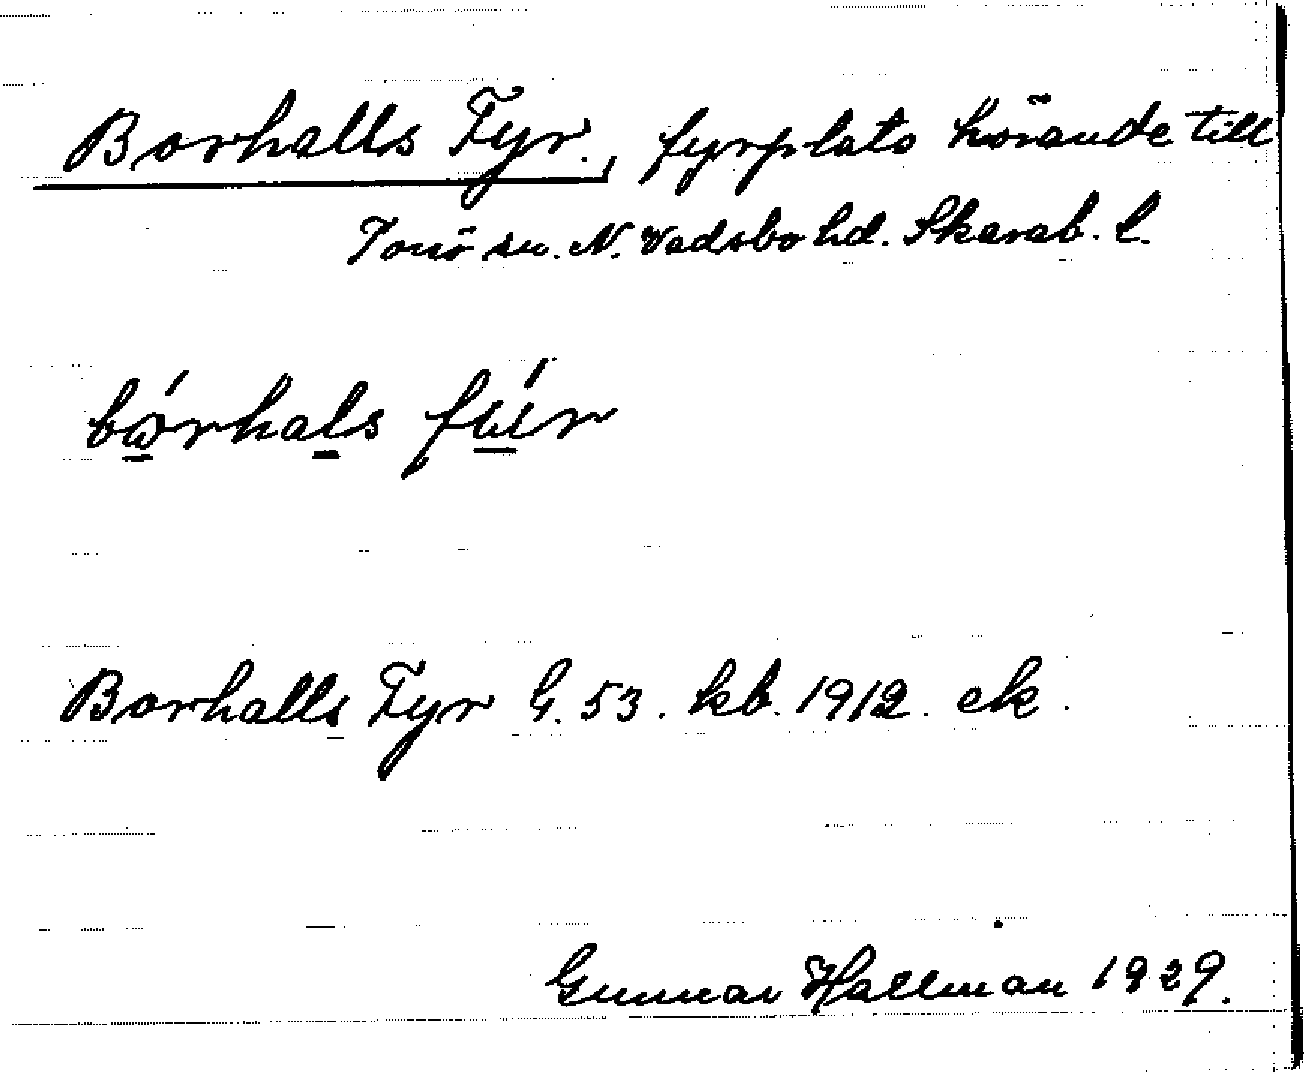 Borhalls Fyr., fyrplats hörande till
Torsö sn. N. Vadsbo hd. Skarab. l.
bórhals fúr
Borhalls Fyr G. 53. kb. 1912. ek.
Gunnar Hallman 1929.